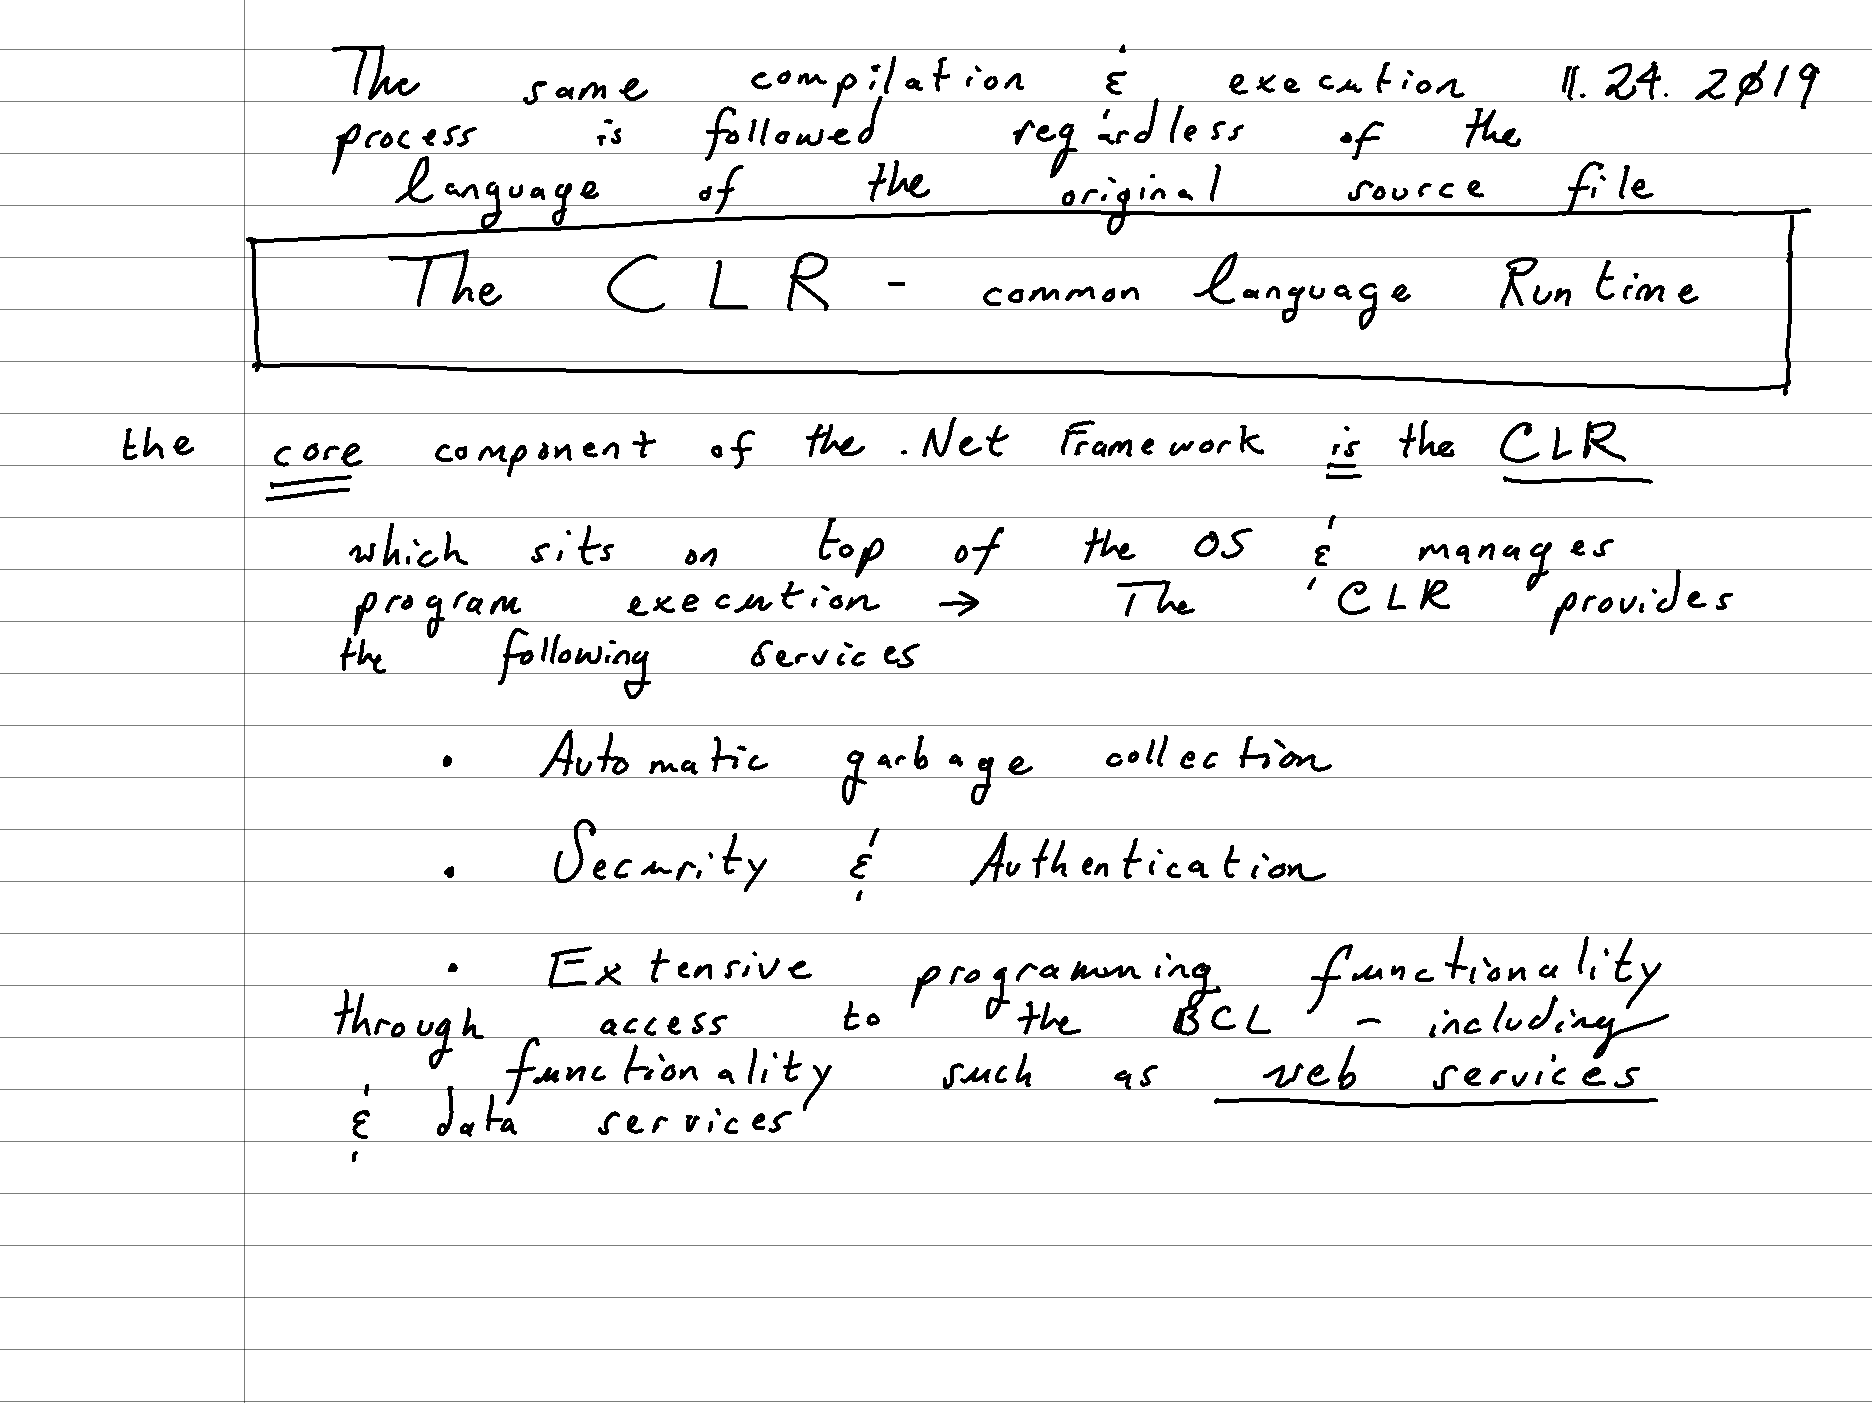 The same compilation & execution 11.24.2019
process is followed regardless of the
language of the original source file
The CLR - common language Runtime
the core component of the .Net Framework is the CLR
which sits on top of the OS & manages
program execution → The CLR provides
the following services
• Automatic garbage collection
• Security & Authentication
• Extensive programming functionality
through access to the BCL - including
functionality such as web services
& data services